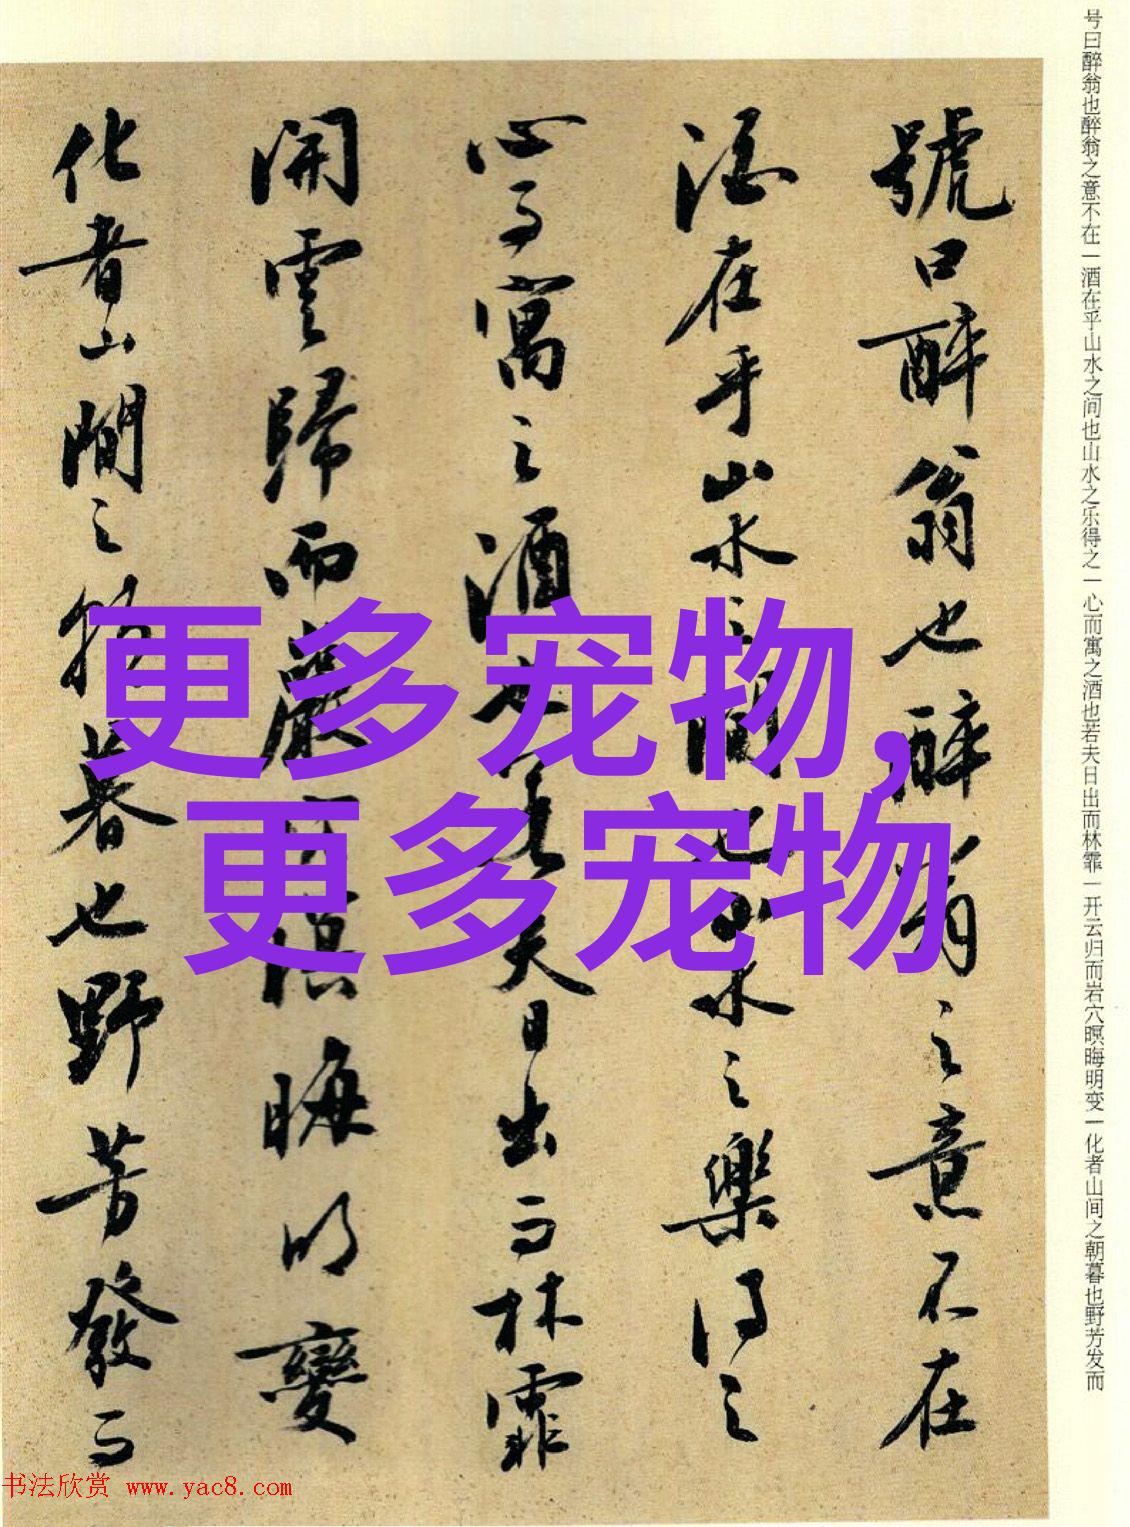 号曰醉翁也醉翁之意不在一酒在乎山水之间也山水之乐得之一心而寓之酒也若夫日出而林霏一开云归而岩穴暝晦明变一化者山间之朝暮也野芳发而
號曰醉翁也醉翁之意不在
酒在乎山水之間也山水之樂得之
心而寓之酒也若夫日出而林霏
開雲歸而巖穴暝晦明變
化者山間之朝暮也野芳發而
更多宠物,
更多宠物
书法欣赏 www.yac8.com